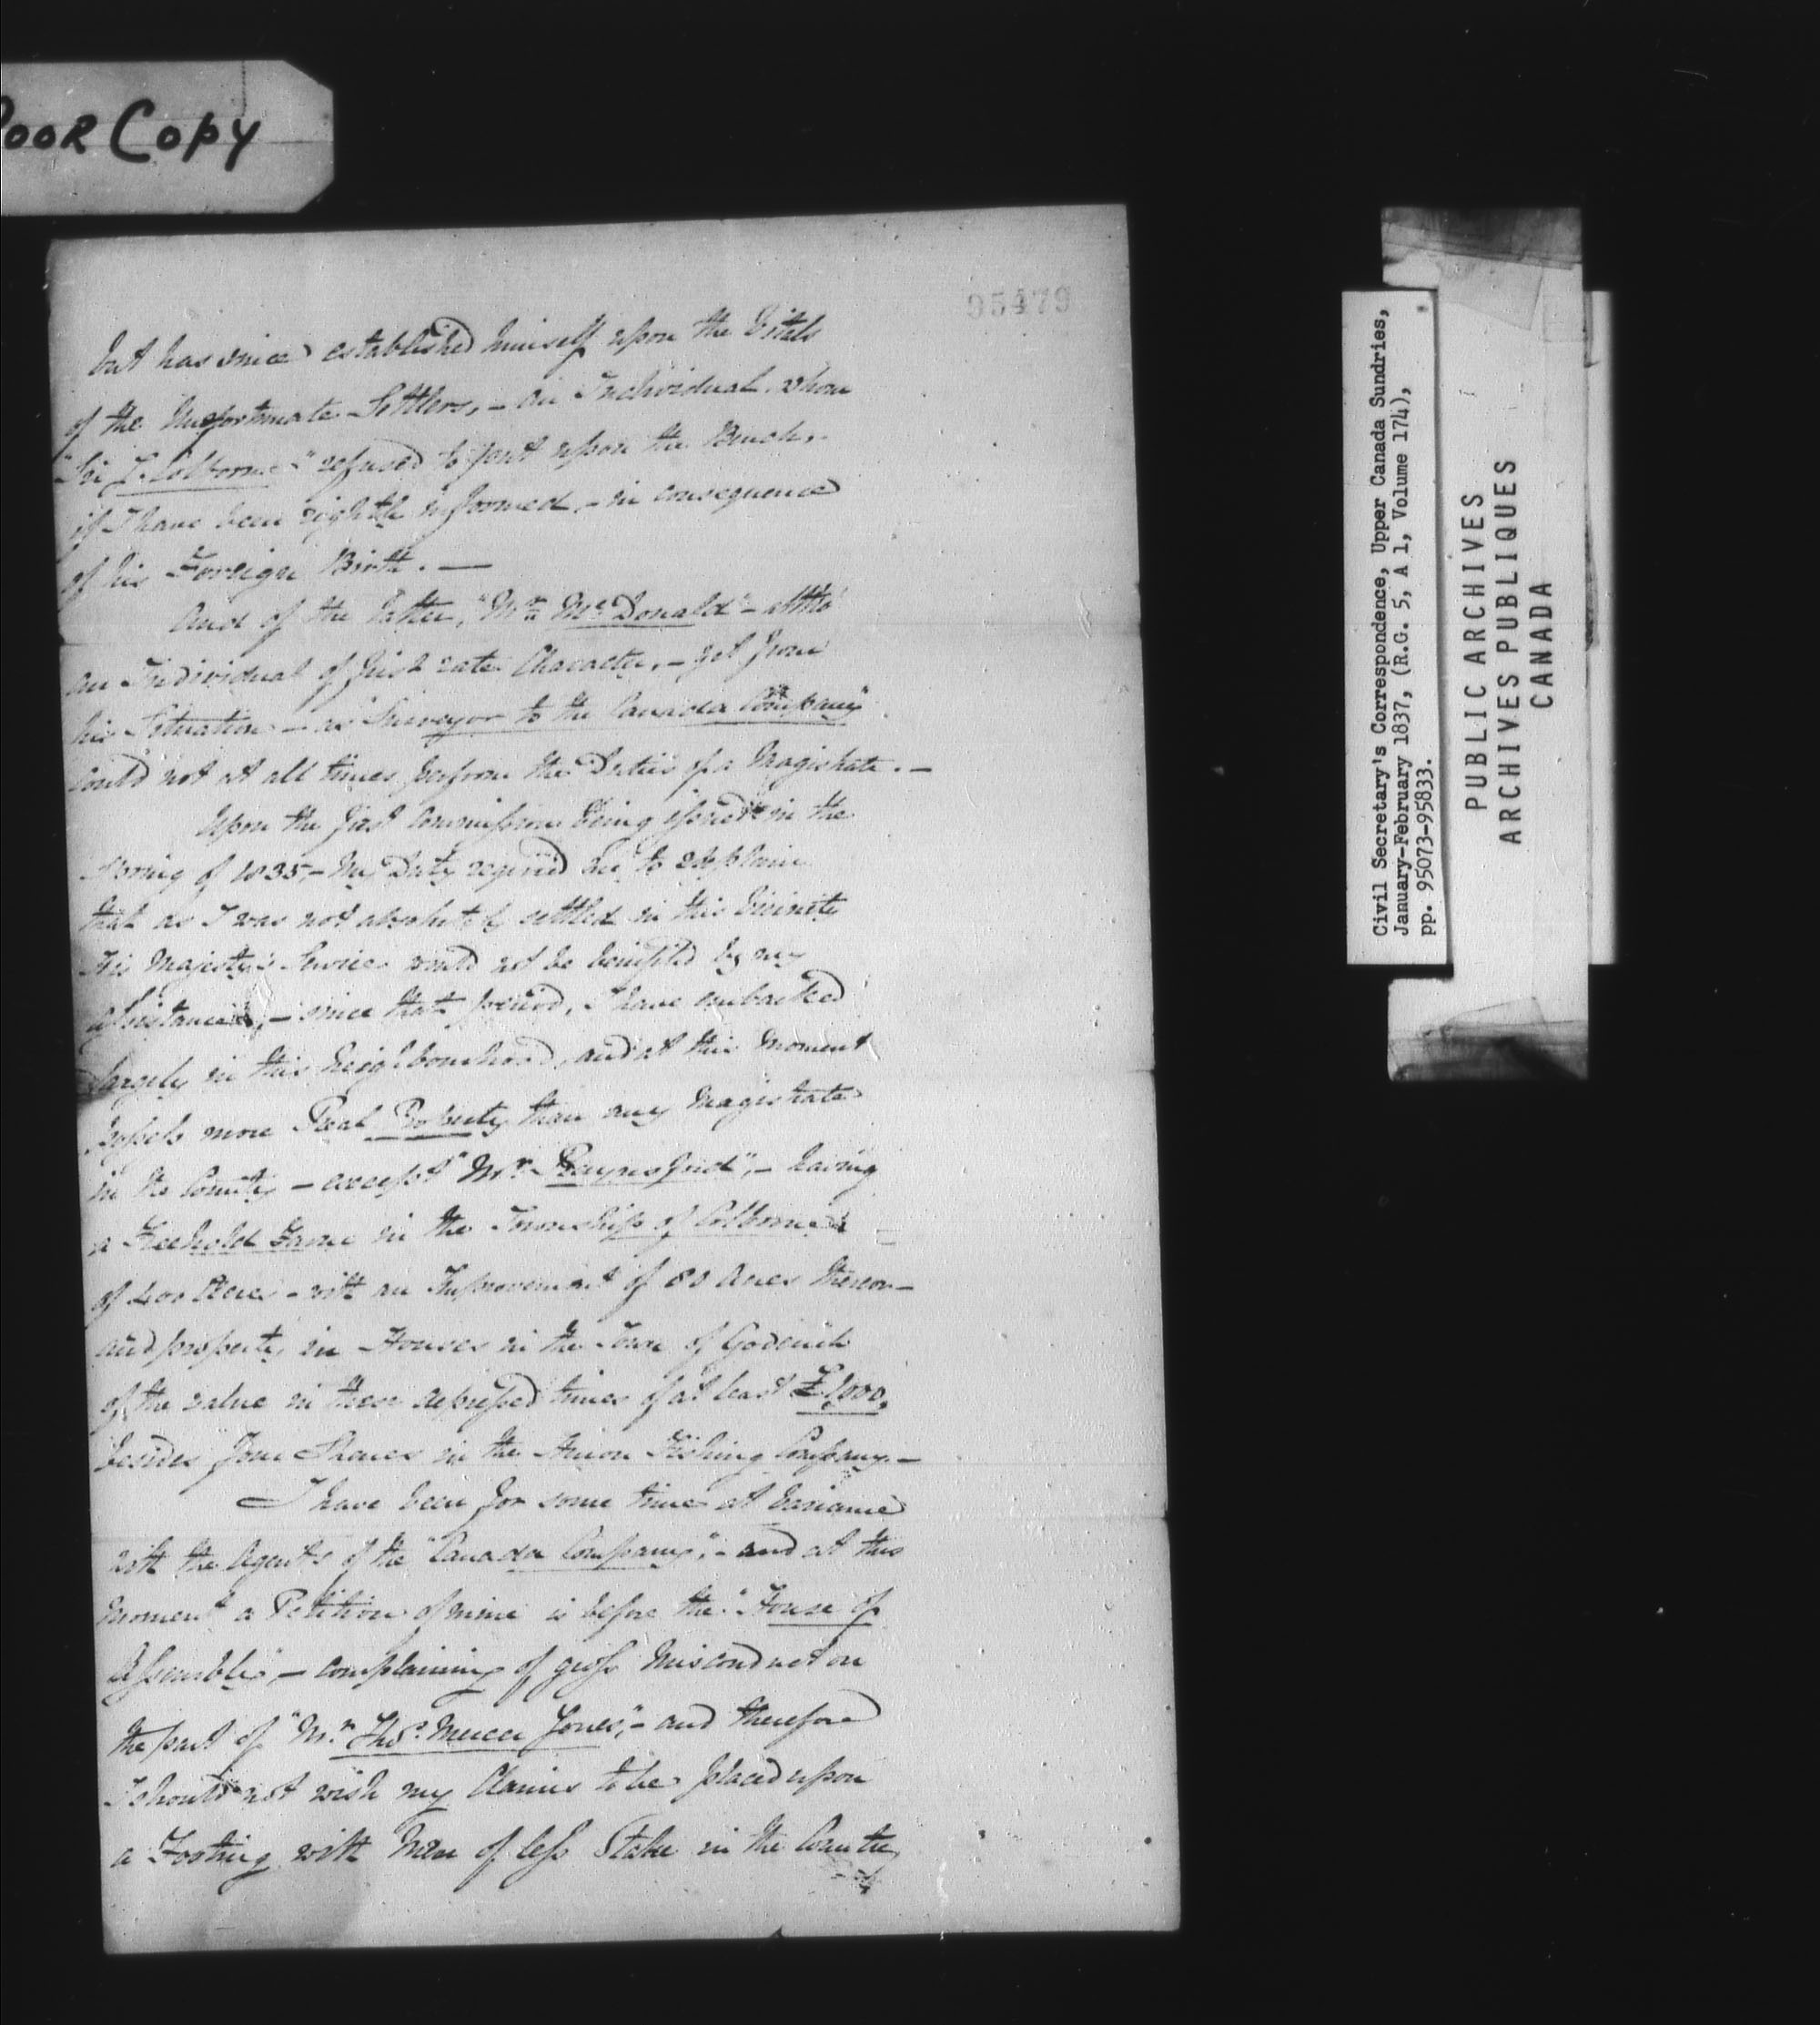 POOR COPY
95479
but has since established himself upon the Vitals
of the Unfortunate Settlers, - an Individual whom
"Sir J. Colborne" refused to put upon the Bench,-
if I have been rightly informed, - in consequence
of his Foreign Birth. —
And of the latter, "Mr. McDonald" - altho'
an Individual of first rate Character, - yet from
his Situation - as Surveyor to the Canada Company"
could not at all times perform the Duties of a Magistrate. —
Upon the first Commission being issued in the
Spring of 1835, - My Duty required me to explain
that as I was not absolutely settled in this Vicinity
His Majesty's Service would not be benefitted by my
assistance, - since that period, I have embarked
largely in this Neighbourhood, and at this moment
possess more Real Property than any Magistrate
in the County - except "Mr. Raynsford", - having
a Freehold Farm in the Township of Colborne
of 400 Acres - with an Improvement of 80 Acres thereon -
and property in Houses in the Town of Goderich
of the value in these depressed times of at least £1,000,
besides four Shares in the Huron Fishing Company. —
I have been for some time at variance
with the Agents of the "Canada Company", - and at this
moment a Petition of mine is before the "House of
Assembly", - complaining of gross Misconduct on
the part of "Mr. Thos. Mercer Jones", - and therefore
I should not wish my Claims to be placed upon
a Footing with Men of less Stake in the Country
Civil Secretary's Correspondence, Upper Canada Sundries,
January-February 1837, (R.G. 5, A 1, Volume 174),
pp. 95073-95833.
PUBLIC ARCHIVES
ARCHIVES PUBLIQUES
CANADA